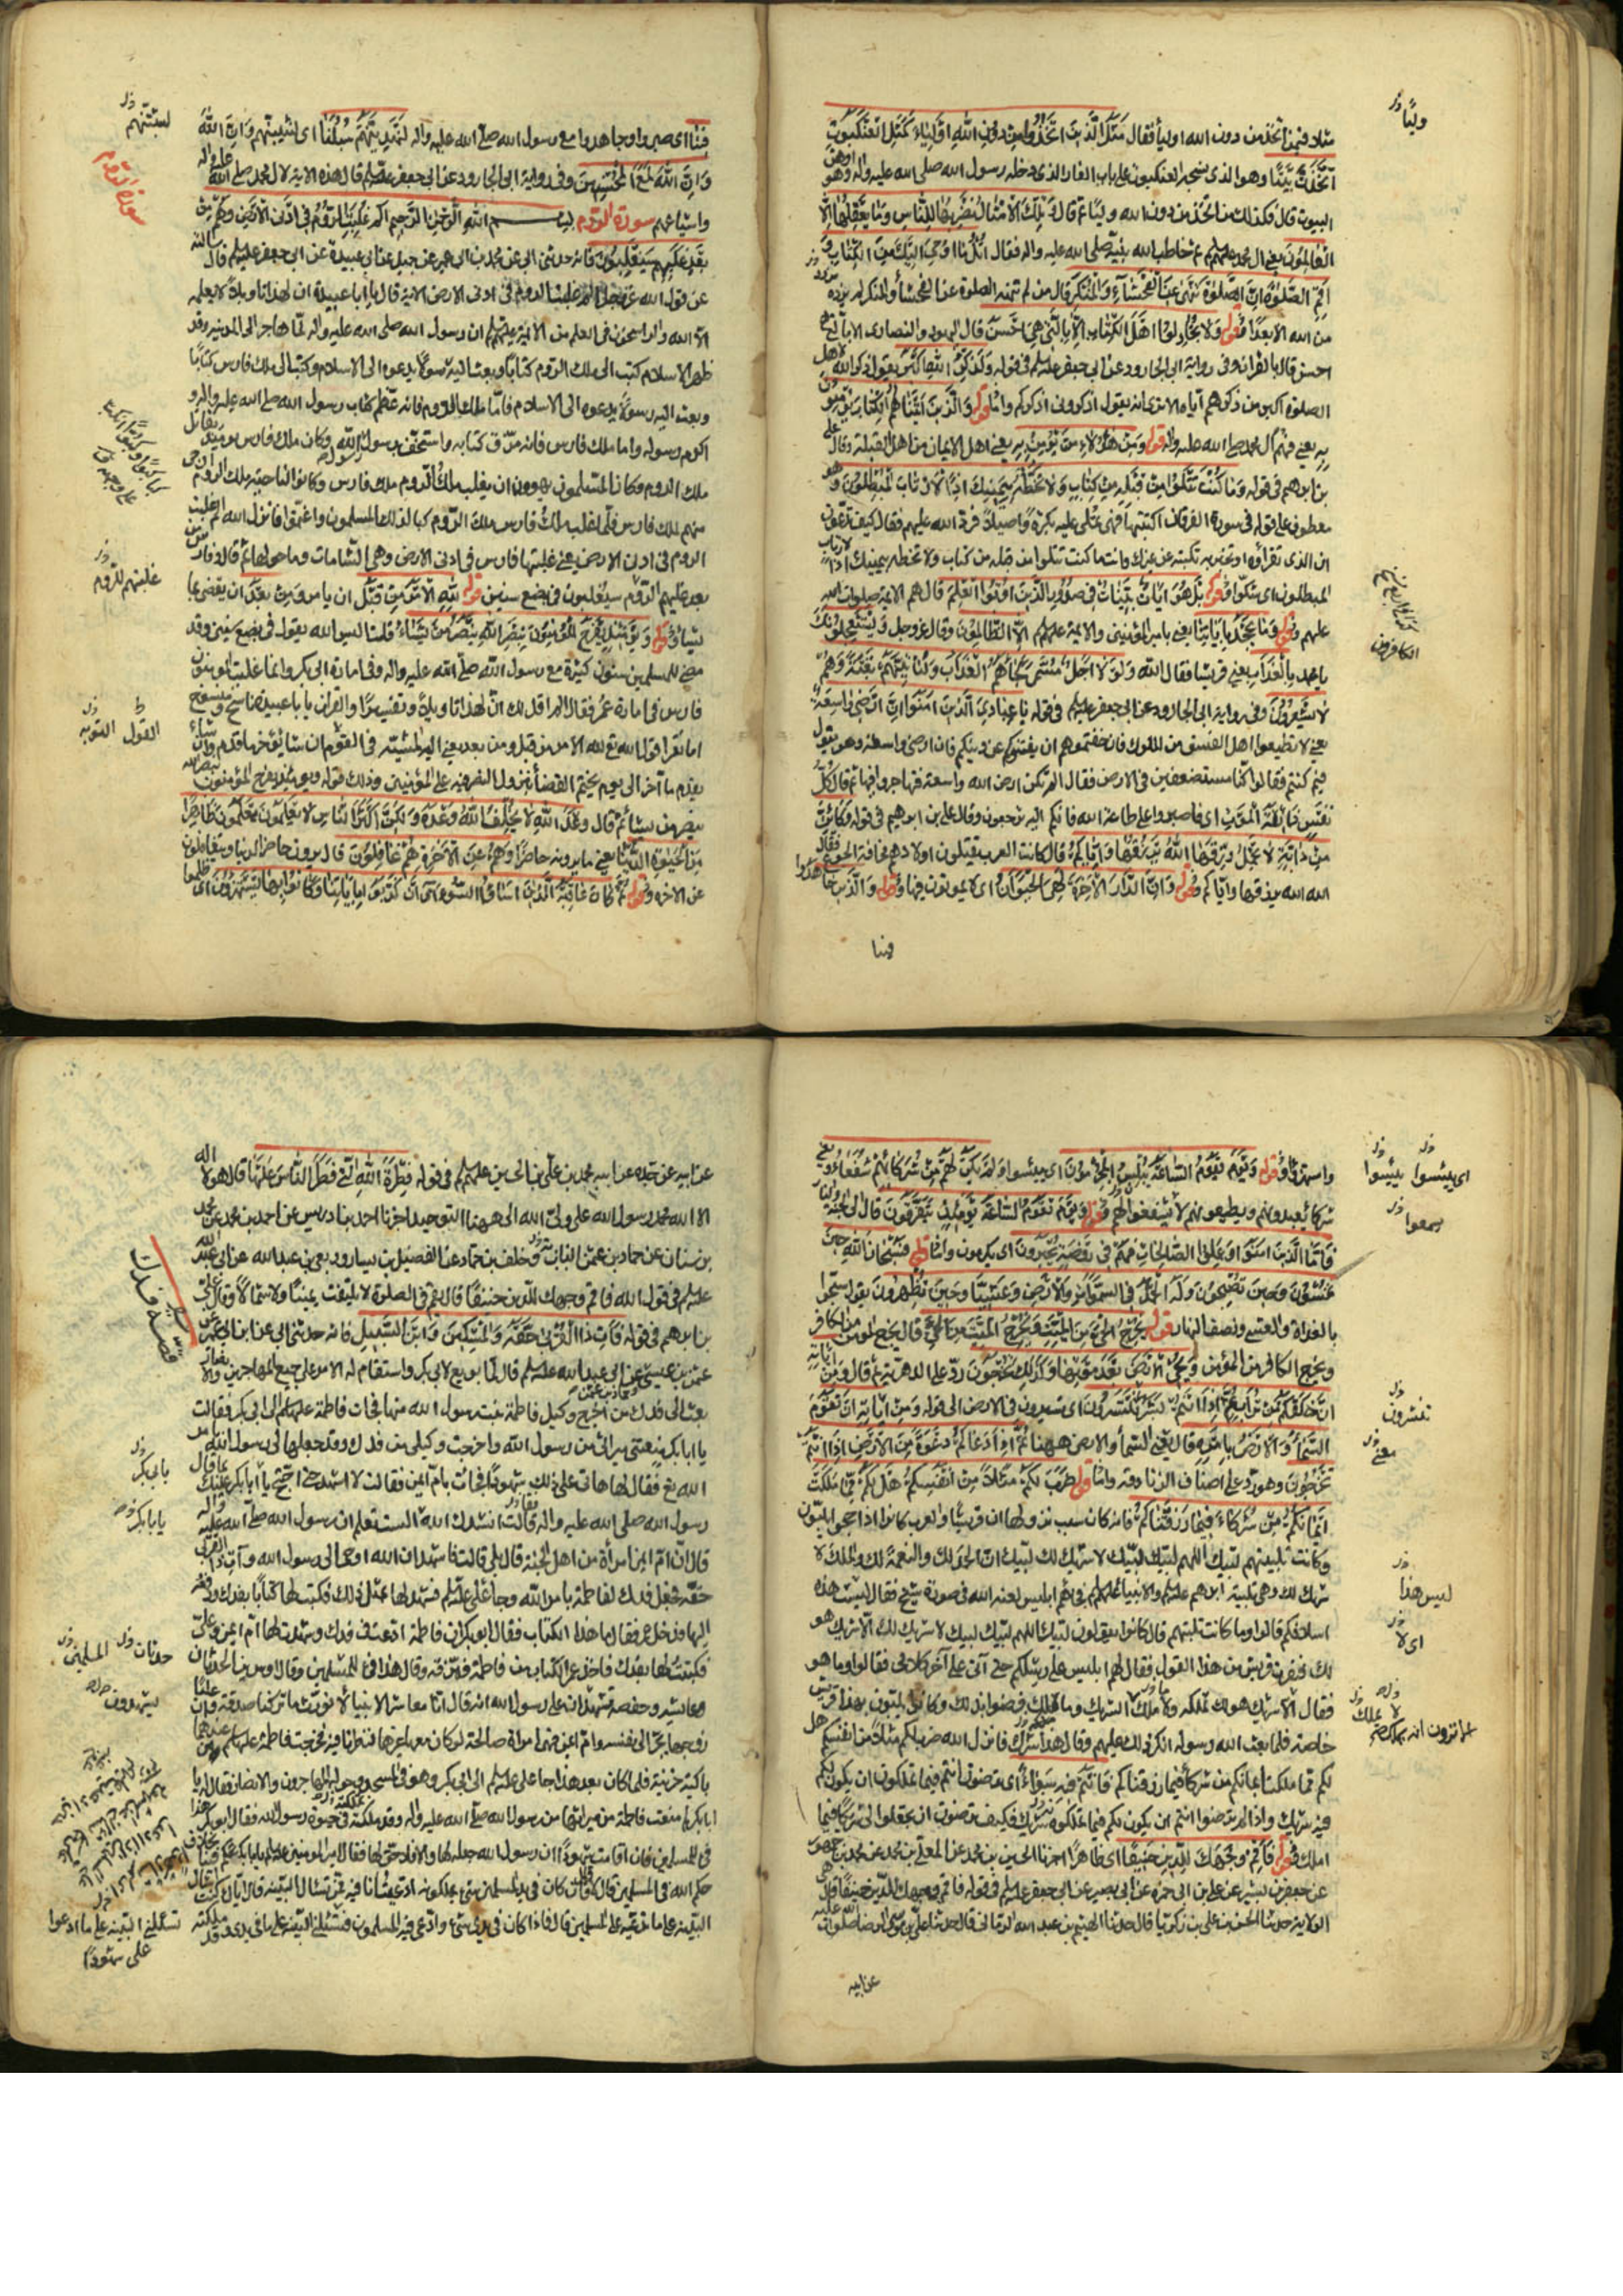 مثلا فيمن اتخذ من دون الله اوليا فقال مَثَلُ الَّذينَ اتَّخَذُوا مِنْ دُونِ اللهِ اَوْلِيَاءَ كَمَثَلِ الْعَنْكَبُوتِ
اتَّخَذَتْ بَيْتًا وهو الذى نسجه العنكبوت على باب الغار الذى دخله رسول الله صلى الله عليه واله وهو اوهن
البيوت قال فكذلك من اتخذ من دون الله وليا ثم قال وَتِلْكَ الْاَمْثَالُ نَضْرِبُهَا لِلنَّاسِ وَمَا يَعْقِلُهَا اِلَّا
الْعَالِمُونَ يعنى ال محمد عليهم ثم خاطب الله نبيه صلى الله عليه واله فقال اُتْلُ مَا اُوحِىَ اِلَيْكَ مِنَ الْكِتَابِ وَ
اَقِمِ الصَّلوةَ اِنَّ الصَّلوةَ تَنْهى عَنِ الْفَحْشَاءِ وَالْمُنْكَرِ قال من لم تنهه الصلوة عن الفحشاء والمنكر لم يزدد
من الله الا بعدا وقوله وَلَا تُجَادِلُوا اَهْلَ الْكِتَابِ اِلَّا بِالَّتِى هِىَ اَحْسَنُ قال اليهود والنصارى الا بالتى هى
احسن قال بالقران وفى رواية ابى الجارود عن ابى جعفر عليه السلم فى قوله وَلَذِكْرُ اللهِ اَكْبَرُ يقول ذكر الله لاهل
الصلوة اكبر من ذكرهم اياه الا ترى انه يقول اذكرونى اذكركم واما قوله وَالَّذينَ اتَيْنَاهُمُ الْكِتَابَ يُؤْمِنُونَ
بِهِ يعنى فهم آل محمد صلى الله عليه واله وقوله وَمِنْ هؤُلَاءِ مَنْ يُؤْمِنُ بِهِ يعنى اهل الايمان من اهل القبلة وقال على
بن ابرهيم فى قوله وَمَا كُنْتَ تَتْلُوا مِنْ قَبْلِهِ مِنْ كِتَابٍ وَلَا تَخُطُّهُ بِيَمِينِكَ اِذًا لَارْتَابَ الْمُبْطِلُونَ وهو
معطوف على قوله فى سورة الفرقان اكتتبها فهى تملى عليه بكرة واصيلا فرد الله عليهم فقال كيف تدعون
ان الذى تقرأه او تخبر به تكتبه عن غيرك وانت ما كنت تتلوا من قبله من كتاب ولا تخطه بيمينك اذا لارتاب
المبطلون اى شكوا وقوله بَلْ هُوَ ايَاتٌ بَيِّنَاتٌ فى صُدُورِ الَّذينَ اُوتُوا الْعِلْمَ قال هم الائمة صلوات الله
عليهم وقوله وَمَا يَجْحَدُ بِايَاتِنَا يعنى بامير المؤمنين والائمة عليهم اِلَّا الظَّالِمُونَ وقال عز وجل وَيَسْتَعْجِلُونَكَ
يا محمد بِالْعَذَابِ يعنى قريشا فقال الله وَلَوْلَا اَجَلٌ مُسَمًّى لَجَاءَهُمُ الْعَذَابُ وَلَيَأْتِيَنَّهُمْ بَغْتَةً وَهُمْ
لَا يَشْعُرُونَ وفى رواية ابى الجارود عن ابى جعفر عليه السلم فى قوله يَا عِبَادِىَ الَّذينَ امَنُوا اِنَّ اَرْضى وَاسِعَةٌ
يعنى لا تطيعوا اهل الفسق من الملوك فان خفتموهم ان يفتنوكم عن دينكم فان ارضى واسعة وهو يقول
فيم كنتم فقالوا كنا مستضعفين فى الارض فقال الم تكن ارض الله واسعة فتهاجروا فيها ثم قال كُلُّ
نَفْسٍ ذَائِقَةُ الْمَوْتِ اى فاصبروا على طاعة الله فانكم اليه ترجعون وقال على بن ابرهيم فى قوله وَكَاَيِّنْ
مِنْ دَابَّةٍ لَا تَحْمِلُ رِزْقَهَا اللهُ يَرْزُقُهَا وَاِيَّاكُمْ قال كانت العرب يقتلون اولادهم مخافة الجوع فقال
الله الله يرزقها واياكم وقوله وَاِنَّ الدَّارَ الْاخِرَةَ لَهِىَ الْحَيَوَانُ اى لا يموتون فيها وقوله وَالَّذينَ جَاهَدُوا
فينا
وليًا
الكافرون
فِينَا اى صبروا وجاهدوا مع رسول الله صلى الله عليه واله لَنَهْدِيَنَّهُمْ سُبُلَنَا اى لنثيبنهم وَاِنَّ اللهَ
وَاِنَّ اللهَ لَمَعَ الْمُحْسِنِينَ وفى رواية ابى الجارود عن ابى جعفر عليه السلم قال هذه الاية لال محمد صلى الله عليه واله
واشياعهم سورة الروم بسم اللهِ الرَّحْمنِ الرَّحيمِ الم غُلِبَتِ الرُّومُ فى اَدْنَى الْاَرْضِ وَهُمْ مِنْ
بَعْدِ غَلَبِهِمْ سَيَغْلِبُونَ فانه حدثنى ابى عن محمد بن ابى عمير عن جميل عن ابى عبيدة عن ابى جعفر عليه السلم قال سالته
عن قول الله عز وجل الم غلبت الروم فى ادنى الارض الاية قال يا ابا عبيدة ان لهذا تاويلا لا يعلمه
الا الله والراسخون فى العلم من الائمة عليهم السلم ان رسول الله صلى الله عليه واله لما هاجر الى المدينة وقد
ظهر الاسلام كتب الى ملك الروم كتابا وبعث اليه رسولا يدعوه الى الاسلام وكتب الى ملك فارس كتابا
وبعث اليه رسولا يدعوه الى الاسلام فاما ملك الروم فانه عظم كتاب رسول الله صلى الله عليه واله و
اكرم رسوله واما ملك فارس فانه مزق كتابه واستخف برسول الله وكان ملك فارس يومئذ يقاتل
ملك الروم فكان المسلمون يهوون ان يغلب ملك الروم ملك فارس وكانوا لناحية ملك الروم ارجى
منهم لملك فارس فلما غلب ملك فارس ملك الروم كبا لذلك المسلمون واغتموا فانزل الله الم غلبت
الروم فى ادنى الارض يعنى غلبتها فارس فى ادنى الارض وهى الشامات وما حولها ثم قال وفارس
بعد غلبهم الروم سيغلبون فى بضع سنين قوله لِلّهِ الْاَمْرُ مِنْ قَبْلُ ان يامر وَمِنْ بَعْدُ ان يقضى بما
يشاء وقوله وَيَوْمَئِذٍ يَفْرَحُ الْمُؤْمِنُونَ بِنَصْرِ اللهِ يَنْصُرُ مَنْ يَشَاءُ قلت اليس الله يقول فى بضع سنين وقد
مضى للمسلمين سنون كثيرة مع رسول الله صلى الله عليه واله وفى امارة ابى بكر وانما غلبت المؤمنون
فارس فى امارة عمر فقال الم اقل لك ان لهذا تاويلا وتفسيرا والقران يا با عبيدة ناسخ ومنسوخ
اما تقرا قول الله تع لله الامر من قبل ومن بعد يعنى اليه المشية فى القول ان شاء يؤخر ما قدم وان شاء
يقدم ما آخر الى يوم يحتم القضاء بنزول النصر فيه على المؤمنين وذلك قوله ويومئذ يفرح المؤمنون بنصر الله
ينصر من يشاء ثم قال وَعْدَ اللهِ لَا يُخْلِفُ اللهُ وَعْدَهُ وَلكِنَّ اَكْثَرَ النَّاسِ لَا يَعْلَمُونَ يَعْلَمُونَ ظَاهِرًا
مِنَ الْحَيوةِ الدُّنْيَا يعنى ما يرونه حاضرا وَهُمْ عَنِ الْاخِرَةِ هُمْ غَافِلُونَ قال يرون حاضر الدنيا ويتغافلون
عن الاخرة وقوله ثُمَّ كَانَ عَاقِبَةَ الَّذينَ اَسَاؤُا السُّواى اَنْ كَذَّبُوا بِايَاتِنَا وَكَانُوا بِهَا يَسْتَهْزِؤُنَ اى ظلموا
سورة الروم
غلبتهم الروم
القول
واستهزؤا وقوله وَيَوْمَ تَقُومُ السَّاعَةُ يُبْلِسُ الْمُجْرِمُونَ اى يئسوا وَلَمْ يَكُنْ لَهُمْ مِنْ شُرَكَائِهِمْ شُفَعَاءُ يعنى
شركاء يعبدونهم ويطيعونهم لا يشفعوا لهم وقوله وَيَوْمَ تَقُومُ السَّاعَةُ يَوْمَئِذٍ يَتَفَرَّقُونَ قال الى الجنة والنار
فَاَمَّا الَّذينَ امَنُوا وَعَمِلُوا الصَّالِحَاتِ فَهُمْ فى رَوْضَةٍ يُحْبَرُونَ اى يكرمون واما قوله فَسُبْحَانَ اللهِ حينَ
تُمْسُونَ وَحينَ تُصْبِحُونَ وَلَهُ الْحَمْدُ فِى السَّموَاتِ وَالْاَرْضِ وَعَشِيًّا وَحينَ تُظْهِرُونَ يقول سبحوا
بالغداة والعشى ونصف النهار قوله يُخْرِجُ الْحَىَّ مِنَ الْمَيِّتِ وَيُخْرِجُ الْمَيِّتَ مِنَ الْحَىِّ قال يخرج المؤمن من الكافر
ويخرج الكافر من المؤمن وَيُحْىِ الْاَرْضَ بَعْدَ مَوْتِهَا وَكَذلِكَ تُخْرَجُونَ رد على الدهرية ثم قال وَمِنْ اياتِهِ
اَنْ خَلَقَكُمْ مِنْ تُرَابٍ ثُمَّ اِذَا اَنْتُمْ بَشَرٌ تَنْتَشِرُونَ اى تسيرون فى الارض الى قوله وَمِنْ ايَاتِهِ اَنْ تَقُومَ
السَّمَاءُ وَالْاَرْضُ بِاَمْرِهِ قال يعنى السماء والارض ههنا ثُمَّ اِذَا دَعَاكُمْ دَعْوَةً مِنَ الْاَرْضِ اِذَا اَنْتُمْ
تَخْرُجُونَ وهو رد على اصناف الزنادقة واما قوله ضَرَبَ لَكُمْ مَثَلًا مِنْ اَنْفُسِكُمْ هَلْ لَكُمْ مِمَّا مَلَكَتْ
اَيْمَانُكُمْ مِنْ شُرَكَاءَ فيمَا رَزَقْنَاكُمْ فانه كان سبب نزولها ان قريشا والعرب كانوا اذا حجوا يلبون
وكانت تلبيتهم لبيك اللهم لبيك لبيك لا شريك لك لبيك ان الحمد لك والنعمة لك والملك لا
شريك لك وهى تلبية ابرهيم عليه السلم والانبياء عليهم السلم فجاءهم ابليس لعنه الله فى صورة شيخ فقال ليست هذه
اسلافكم قالوا وما كانت تلبيتهم قال كانوا يقولون لبيك اللهم لبيك لبيك لا شريك لك الا شريك هو
لك فنفرت قريش من هذا القول فقال لهم ابليس على رسلكم حتى آتى على آخر كلامى فقالوا وما هو
فقال الا شريك هو لك تملكه وما ملك الا ترون انه يملك الشريك وما ملك فرضوا بذلك وكانوا يلبون بهذا قريش
خاصة فلما بعث الله رسوله انكر ذلك عليهم وقال هذا شرك فانزل الله ضرب لكم مثلا من انفسكم هل
لكم مما ملكت ايمانكم من شركاء فيما رزقناكم فَاَنْتُمْ فيهِ سَوَاءٌ اى ترضون انتم فيما تملكون ان يكون لكم
فيه شريك واذا لم ترضوا انتم ان يكون لكم فيما تملكونه شريك فكيف ترضون ان تجعلوا لى شريكا فيما
املك وقوله فَاَقِمْ وَجْهَكَ لِلدّينِ حَنيفًا اى طاهرا اخبرنا الحسين بن محمد عن المعلى بن محمد عن محمد بن جمهور
عن جعفر بن بشير عن على بن ابى حمزة عن ابى بصير عن ابى جعفر عليه السلم فى قوله فاقم وجهك للدين حنيفا قال هى
الولاية حدثنا الحسن بن على بن زكريا قال حدثنا الهيثم بن عبد الله الرمانى قال حدثنا على بن موسى الرضا صلوات الله عليه
عن ابيه
اى يبئسوا
معنى
ليس هذا
اى لا
عن ابيه عن جده عن ابيه محمد بن على بن الحسين عليهم السلم فى قوله فِطْرَةَ اللهِ الَّتِى فَطَرَ النَّاسَ عَلَيْهَا قال هو لا اله
الا الله محمد رسول الله على ولى الله الى ههنا التوحيد اخبرنا احمد بن ادريس عن احمد بن محمد عن محمد
بن سنان عن حماد بن عثمن الناب وخلف بن حماد عن الفضيل بن يسار وربعى بن عبد الله عن ابى عبد الله
عليه السلم فى قول الله فاقم وجهك للدين حنيفا قال يقم فى الصلوة لا يلتفت يمينا ولا شمالا وقال على
بن ابرهيم فى قوله فَاتِ ذَا الْقُرْبى حَقَّهُ وَالْمِسْكِينَ وَابْنَ السَّبيلِ فانه حدثنى ابى عن ابن ابى عمير عن
عثمن بن عيسى عن ابى عبد الله عليه السلم قال لما بويع لابى بكر واستقام له الامر على جميع المهاجرين والانصار
بعث الى فدك من اخرج وكيل فاطمة بنت رسول الله منها فجاءت فاطمة عليها السلم الى ابى بكر فقالت
يا ابا بكر منعتنى ميراثى من رسول الله واخرجت وكيلى من فدك وقد جعلها لى رسول الله بامر
الله تع فقال لها هاتى على ذلك شهودا فجاءت بام ايمن فقالت لا اشهد حتى احتج يا ابا بكر عليك بما قال
رسول الله صلى الله عليه واله فقالت انشدك الله الست تعلم ان رسول الله صلى الله عليه واله
قال ان ام ايمن امرأة من اهل الجنة قال بلى قالت فاشهد ان الله اوحى الى رسول الله وآت ذا القربى
حقه فجعل فدك لفاطمة بامر الله وجاء على عليه السلم فشهد لها بمثل ذلك فكتب لها كتابا بفدك ودفعه
اليها فدخل عمر فقال ما هذا الكتاب فقال ابو بكر ان فاطمة ادعت فى فدك وشهدت لها ام ايمن وعلى
فكتبت لها بفدك فاخذ عمر الكتاب من فاطمة فمزقه وقال هذا فئ للمسلمين وقال اوس بن الحدثان
وعايشة وحفصة يشهدان على رسول الله انه قال انا معاشر الانبياء لا نورث ما تركنا صدقة وان عليا
زوجها يجر الى نفسه وام ايمن فهى امراة صالحة لو كان معها غيرها لنظرنا فيه فخرجت فاطمة عليها السلم من عندهما
باكية حزينة فلما كان بعد هذا جاء على عليه السلم الى ابى بكر وهو فى المسجد وحوله المهاجرون والانصار فقال يا
ابا بكر لم منعت فاطمة من ميراثها من رسول الله صلى الله عليه واله وقد ملكته فى حيوة رسول الله فقال ابو بكر هذا
فئ للمسلمين فان اقامت شهودا ان رسول الله جعله لها والا فلا حق لها فقال امير المؤمنين عليه السلم يا با بكر تحكم فينا بخلاف
حكم الله فى المسلمين قال لا قال فان كان فى يد المسلمين شئ يملكونه ادعيت انا فيه ممن تسال البينة قال اياك كنت اسال
البينة على ما تدعيه على المسلمين قال فاذا كان فى يدى شئ وادعى فيه المسلمون فتسئلنى البينة على ما فى يدى وقد ملكته
قصة فدك
يا با بكر
حدثان
المسلمين
يشهدون
تسئلنى البينة على ما ادعوا
على شهودا